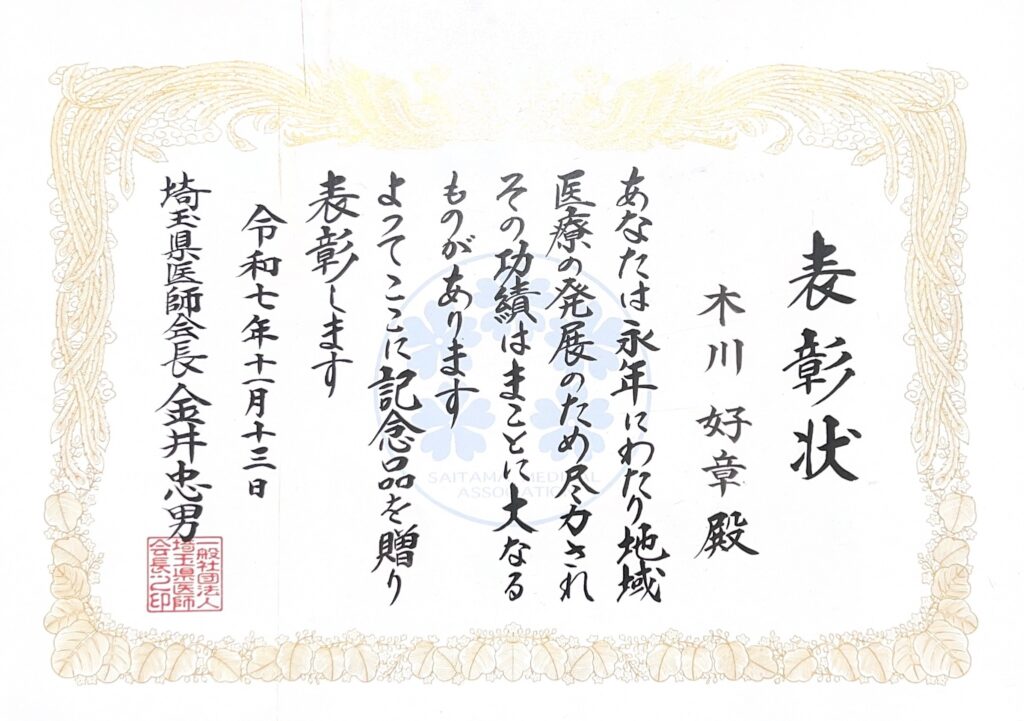 表彰状
木川 好章 殿
あなたは永年にわたり地域
医療の発展のため尽力され
その功績はまことに大なる
ものがあります
よってここに記念品を贈り
表彰します
令和七年十一月十三日
埼玉県医師会長 金井忠男
一般社団法人
埼玉県医師
会長之印
SAITAMA MEDICAL
ASSOCIATION